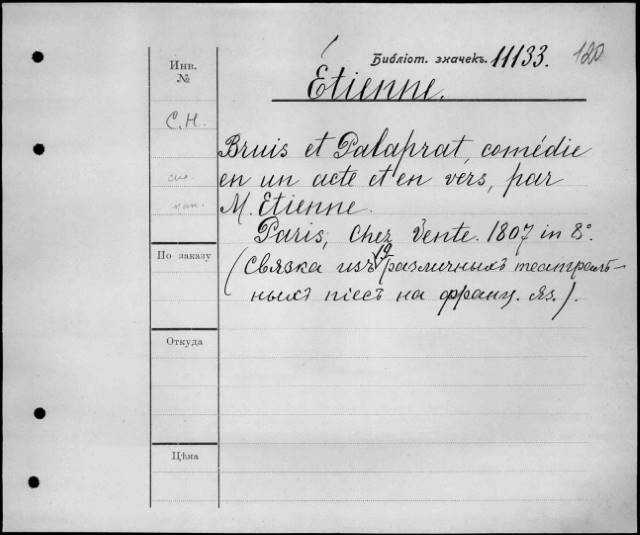 Библіот. значекъ. 11133. 120
Инв.
№
Étienne.
С.Н.
Bruis et Palaprat, comédie
en un acte et en vers, par
M. Etienne.
Paris, chez Vente. 1807 in 8º.
По заказу
(Связка изъ 19 различныхъ театраль-
ныхъ піесъ на франц. яз.).
Откуда
Цѣна